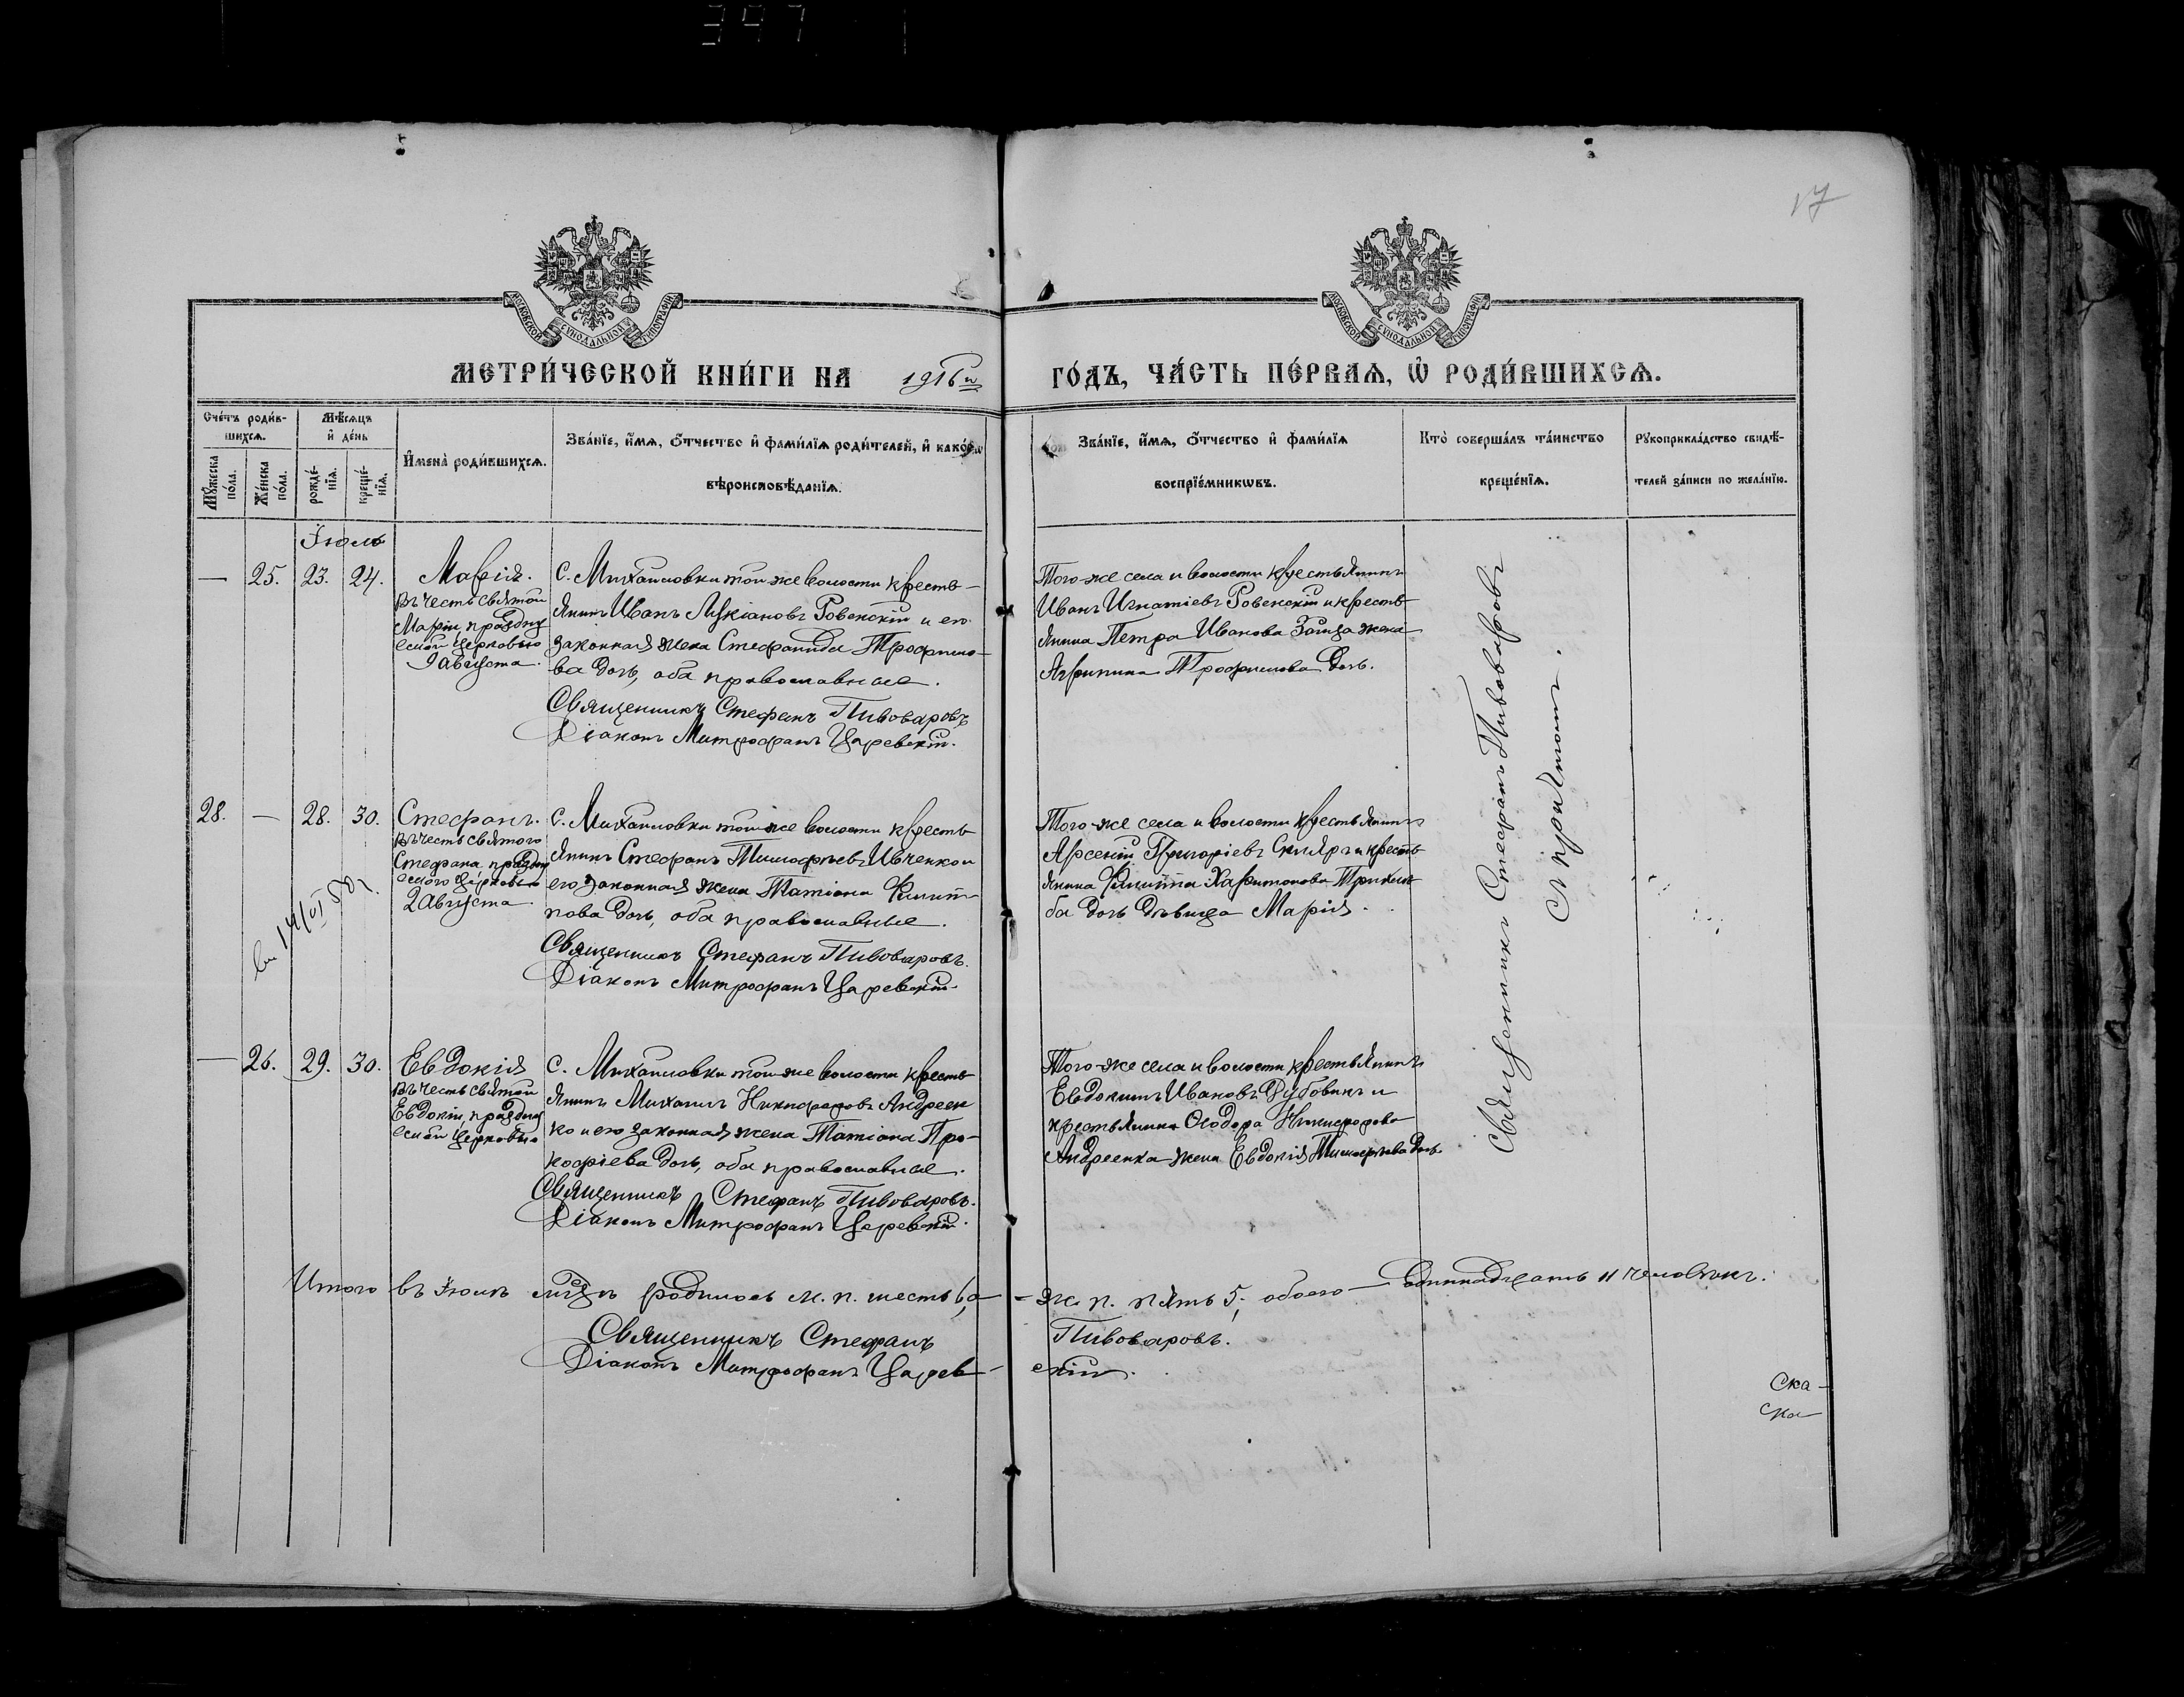 397
17
МОСКОВСКОЙ СУНОДАЛЬНОЙ ТИПОГРАФІИ
МОСКОВСКОЙ СУНОДАЛЬНОЙ ТИПОГРАФІИ
МЕТРИ́ЧЕСКОЙ КНИ́ГИ НА 1916 й ГО́ДЪ, ЧА́СТЬ ПЕ́РВАѦ, Ѿ РОДИ́ВШИХСѦ.
Сче́тъ роди́в-
шихсѧ.
Мѣ́сѧцъ
и҆ де́нь
Мꙋ́жеска по́ла.
Же́нска по́ла.
рожде́-
нїѧ.
креще́-
нїѧ.
И҆мена̀ роди́вшихсѧ.
Зва́нїе, и҆́мѧ, о҆́тчество и҆ фами́лїѧ роди́телей, и҆ како́гѡ
вѣроисповѣ́данїѧ.
Зва́нїе, и҆́мѧ, о҆́тчество и҆ фами́лїѧ
воспрїе́мникѡвъ.
Кто̀ соверша́лъ та́инство
креще́нїѧ.
Рꙋкоприкла́дство свидѣ́-
телей за́писи по жела́нїю.
Іюль
— 25. 23. 24.
Марія.
Въ честь святой
Маріи праздну
емой церковью
9 августа.
С. Михайловки той же волости кресть-
янинъ Иванъ Лукіановъ Ровенскій и его
законная жена Стефанида Трофимо-
ва дочь, оба православные.
Священникъ Стефанъ Пивоваровъ
Діаконъ Митрофанъ Царевскій.
Того-же села и волости крестьянинъ
Иванъ Игнатіевъ Ровенскій и кресть-
янина Петра Иванова Заица жена
Агрипина Трофимова дочь.
28. — 28. 30.
Стефанъ.
Въ честь святого
Стефана, праздну
емого церковью
2 Августа
С. Михайловки той же волости кресть-
янинъ Стефанъ Тимофѣевъ Ивченко и
его законная жена Татіана Филип-
пова дочь, оба православные.
Священникъ Стефанъ Пивоваровъ.
Діаконъ Митрофанъ Царевскій
Того-же села и волости крестьянинъ
Арсеній Григоріевъ Скляръ и кресть-
янина Филиппа Харитонова
ба дочь дѣвица Марія.
14/VI 58 г.
— 26. 29. 30.
Евдокія
Въ честь святой
Евдокіи, праздну
емой церковью
С. Михайловки той-же волости кресть-
янинъ Михаилъ Никифоровъ Андреен
ко и его законная жена Татіана Про-
кофіева дочь, оба православные.
Священникъ Стефанъ Пивоваровъ.
Діаконъ Митрофанъ Царевскій.
Того-же села и волости крестьянинъ
Евдокимъ Ивановъ Дубовикъ и
крестьянина Ѳеодора Никифорова
Андреенка жена Евдокія Тимофѣева дочь.
Священникъ Стефанъ Пивоваровъ
Съ причтомъ.
Итого въ Іюлѣ мцѣ родилось м. п. шесть 6, а — ж. п. пять 5, обоего — одиннадцать 11 человѣкъ.
Священникъ Стефанъ Пивоваровъ.
Діаконъ Митрофанъ Царев-скій.
Ска-
ска